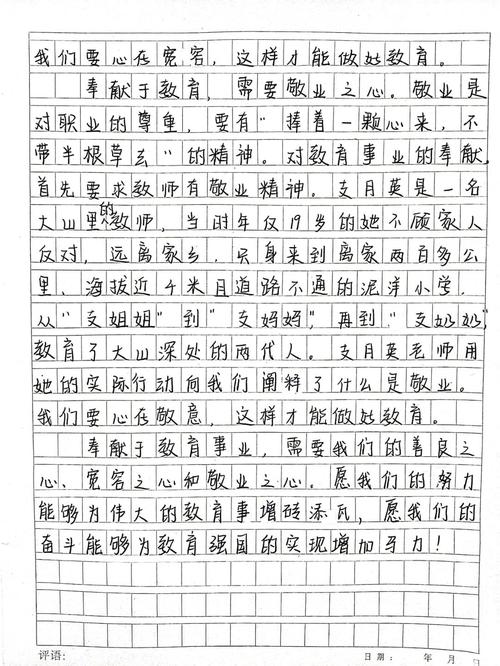 我们要心存宽容，这样才能做好教育。
奉献于教育，需要敬业之心。敬业是
对职业的尊重，要有"捧着一颗心来，不
带半根草去"的精神。对教育事业的奉献，
首先要求教师有敬业精神。支月英是一名
大山里的教师，当时年仅19岁的她不顾家人
反对，远离家乡，只身来到离家两百多公
里、海拔近千米且道路不通的泥洋小学，
从"支姐姐"到"支妈妈"，再到"支奶奶"，
教育了大山深处的两代人。支月英老师用
她的实际行动向我们阐释了什么是敬业。
我们要心存敬意，这样才能做好教育。
奉献于教育事业，需要我们的善良之
心、宽容之心和敬业之心。愿我们的努力
能够为伟大的教育事增砖添瓦，愿我们的
奋斗能够为教育强国的实现增加马力！
评语：
日期： 年 月 日